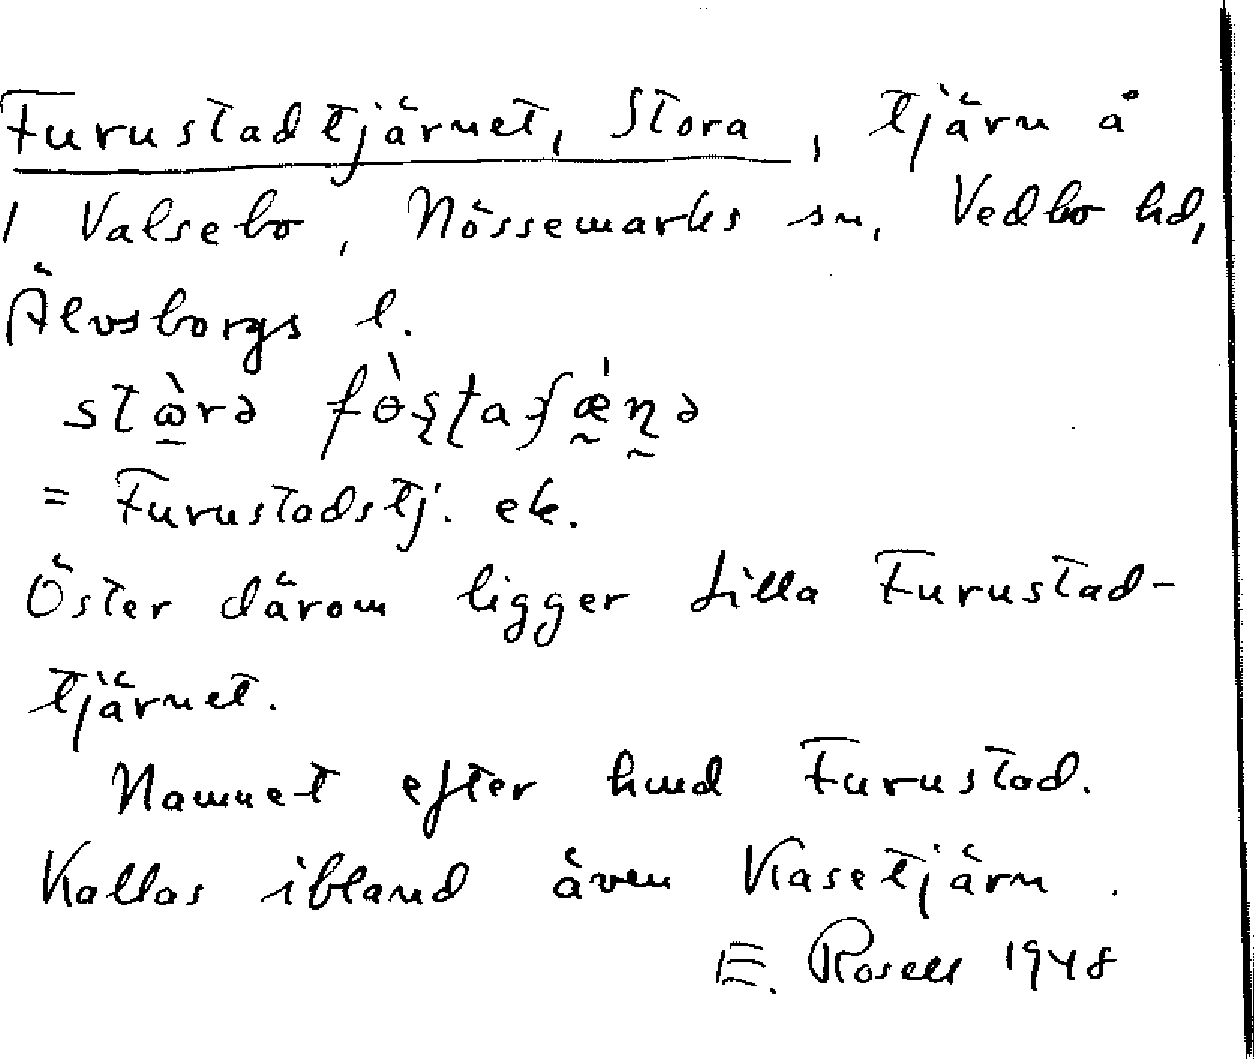 Furustadtjärnet, Stora, tjärn å
1 Valsebo, Nössemarks sn, Vedbo hd,
Älvsborgs l.
stὼrə fɵ̀ʂʈaʃǽɳə
= Furustadstj. ek.
Öster därom ligger Lilla Furustad-
tjärnet.
Namnet efter hmd Furustad.
Kallas ibland även Kasetjärn.
E. Rosell 1948